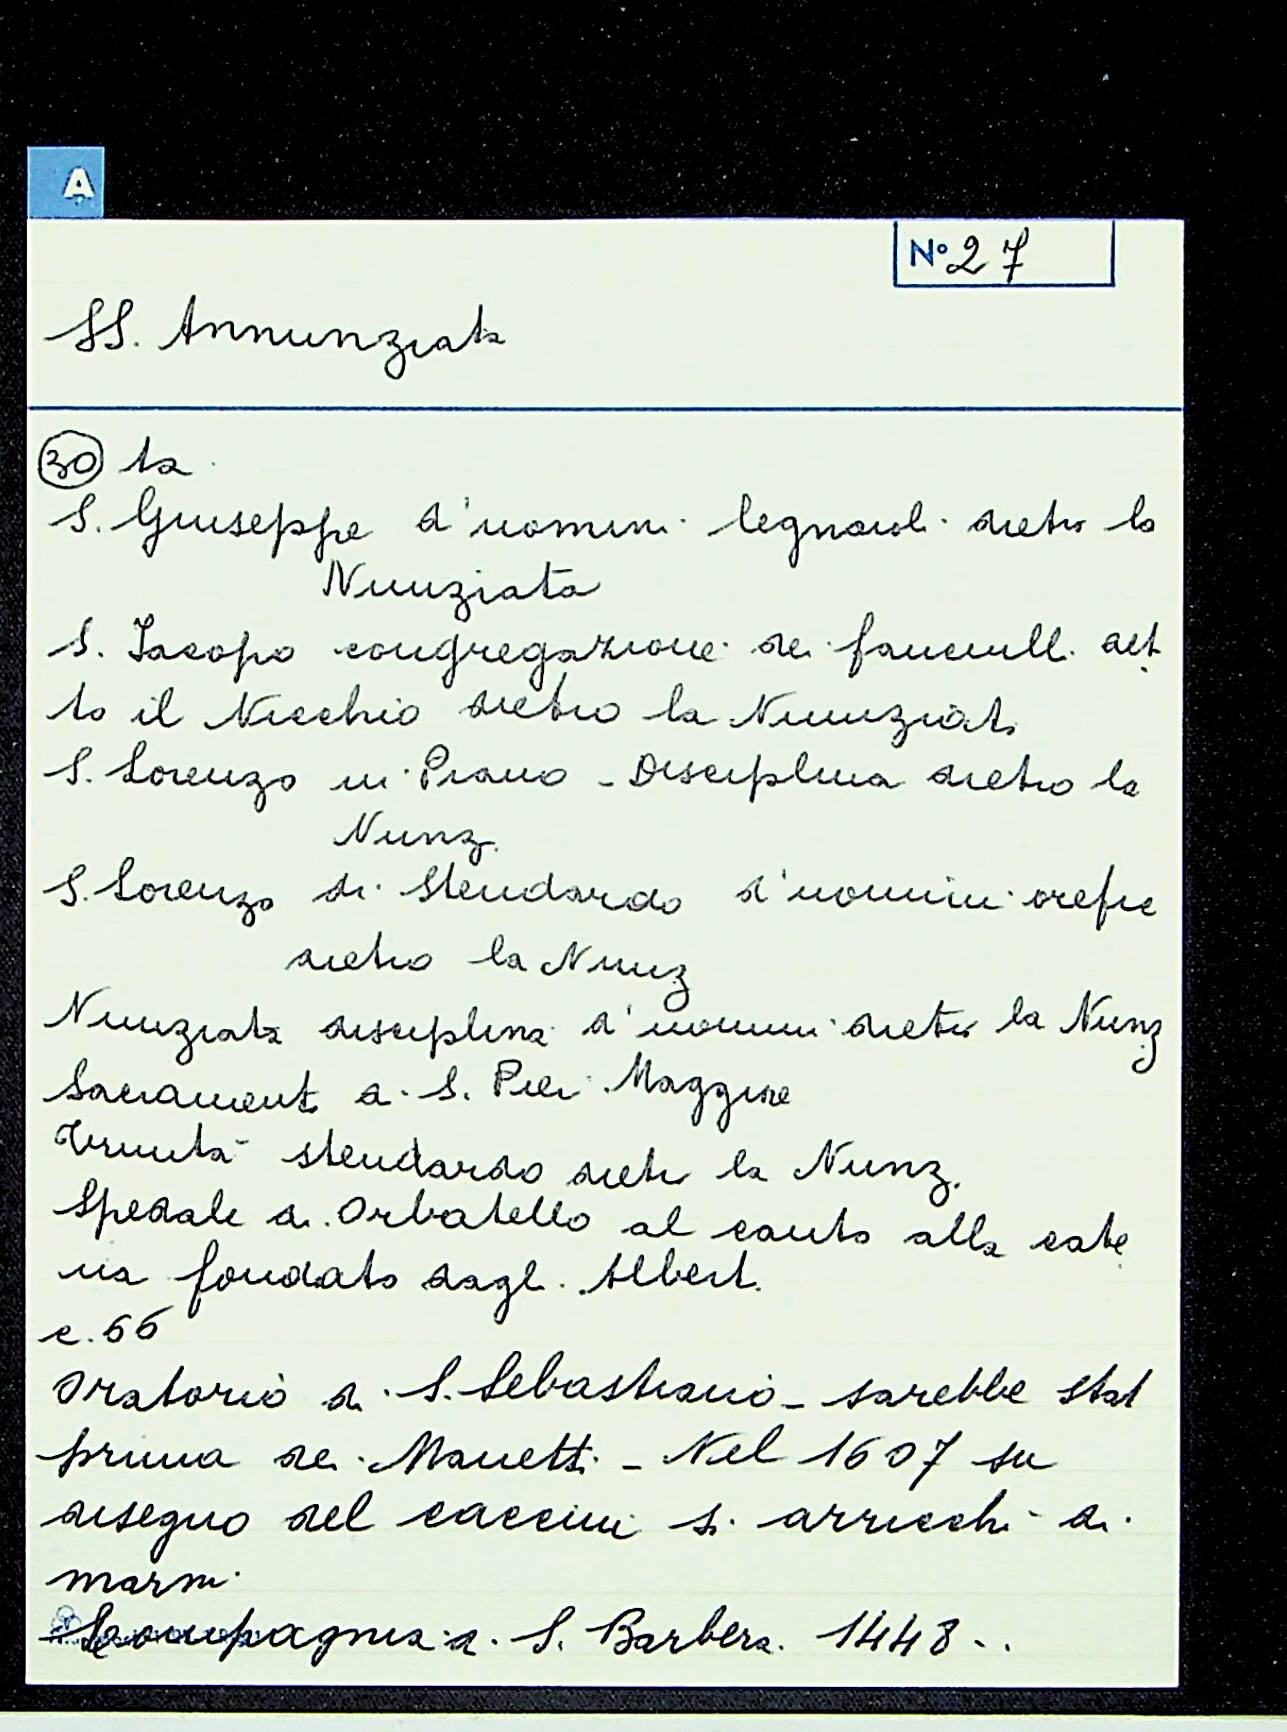 A
N° 27
SS. Annunziata
30 ta
S. Giuseppe d'uomini legnaioli dietro la
Nunziata
S. Jacopo congregazione dei fanciulli det
to il Nicchio dietro la Nunziata
S. Lorenzo in Piano - Disciplina dietro la
Nunz.
S. Lorenzo di Stendardo d'uomini orefic
dietro la Nunz
Nunziata disciplina d'uomini dietro la Nunz
Sacramento a S. Pier Maggiore
Trinità stendardo dietro la Nunz.
Spedale di Orbatello al canto alla cate
na fondato dagli Alberti
c. 66
Oratorio di S. Sebastiano - sarebbe stat
prima dei Manetti - Nel 1607 su
disegno del Caccini si arricchì di
marmi
compagnia di S. Barbera 1448..